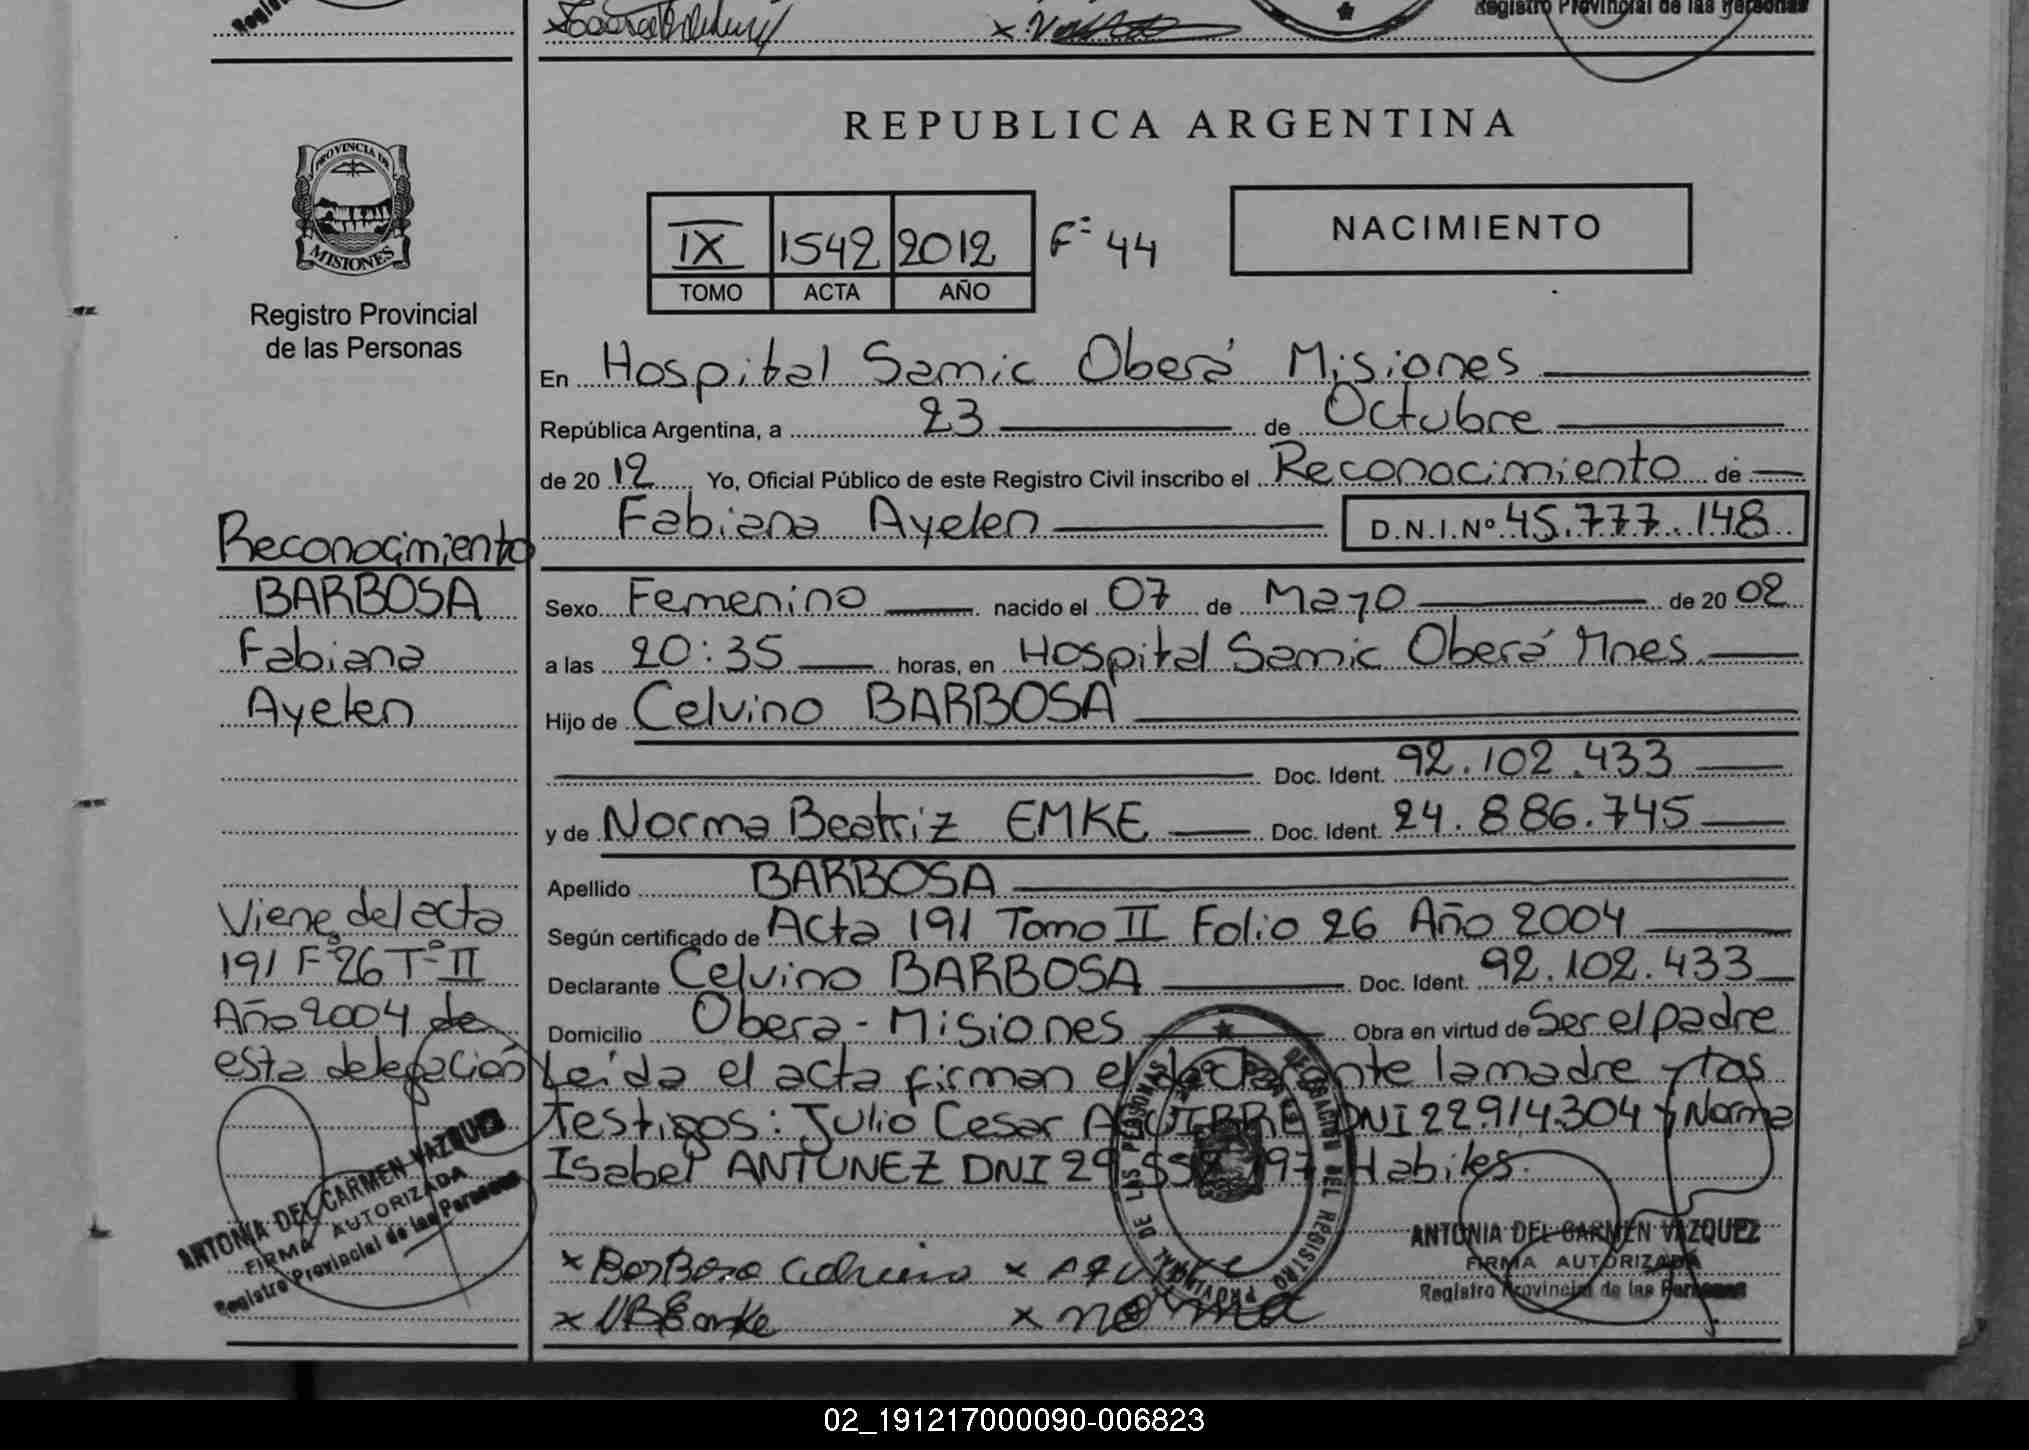 Registro Provincial de las Personas
REPUBLICA ARGENTINA
PROVINCIA DE
MISIONES
Registro Provincial
de las Personas
IX 1542 2012 Fº 44
TOMO ACTA AÑO
NACIMIENTO
En Hospital Samic Oberá Misiones
República Argentina, a 23 de Octubre
de 2012 Yo, Oficial Público de este Registro Civil inscribo el Reconocimiento de
Fabiana Ayelen D.N.I.Nº 45.777.148
Sexo Femenino nacido el 07 de Mayo de 2002
a las 20:35 horas, en Hospital Samic Oberá Mnes.
Hijo de Celvino BARBOSA
Doc. Ident. 92.102.433
y de Norma Beatriz EMKE Doc. Ident. 24.886.745
Apellido BARBOSA
Según certificado de Acta 191 Tomo II Folio 26 Año 2004
Declarante Celvino BARBOSA Doc. Ident. 92.102.433
Domicilio Obera - Misiones Obra en virtud de Ser el padre
Leída el acta firman el declarante la madre y los
testigos: Julio Cesar AGUIRRE DNI 22.914.304 y Norma
Isabel ANTUNEZ DNI 29 Habiles.
Reconocimiento
BARBOSA
Fabiana
Ayelen
Viene del acta
191 Fº 26 Tº II
Año 2004 de
esta delegación
ANTONIA DEL CARMEN VAZQUEZ
FIRMA AUTORIZADA
Registro Provincial de las Personas
DELEGACION DEL REGISTRO PROVINCIAL DE LAS PERSONAS
x Barbosa x
x NBEmke x norma
ANTONIA DEL CARMEN VAZQUEZ
FIRMA AUTORIZADA
Registro Provincial de las Personas
02_191217000090-006823